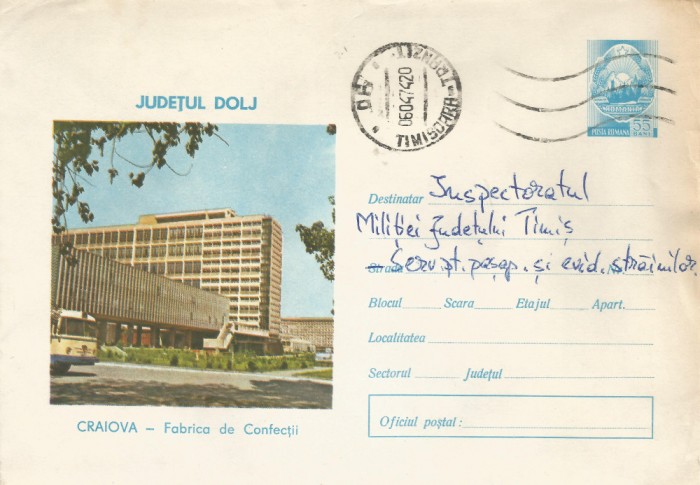 JUDEȚUL DOLJ
TIMIȘOARA-TRANZIT
06047420
ROMANIA
POSTA ROMANA
55
BANI
Destinatar Inspectoratul
Miliției Județului Timiș
Strada Serv. pt. pașap. și evid. străinilor
Blocul Scara Etajul Apart.
Localitatea
Sectorul Județul
Oficiul poștal:
CRAIOVA – Fabrica de Confecții